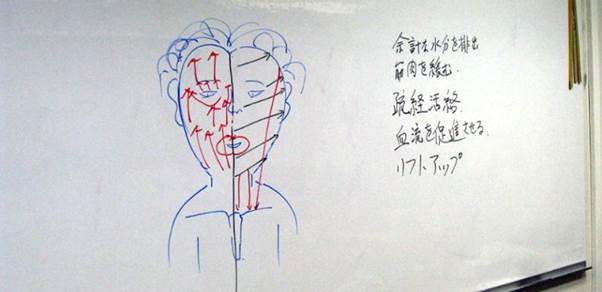 余計な水分を排出
筋肉を緩む.
疏経活絡.
血流を促進させる.
リフトアップ